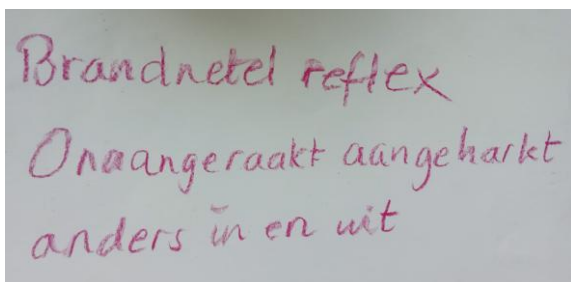 Brandnetel reflex
Onaangeraakt aangeharkt
anders in en uit